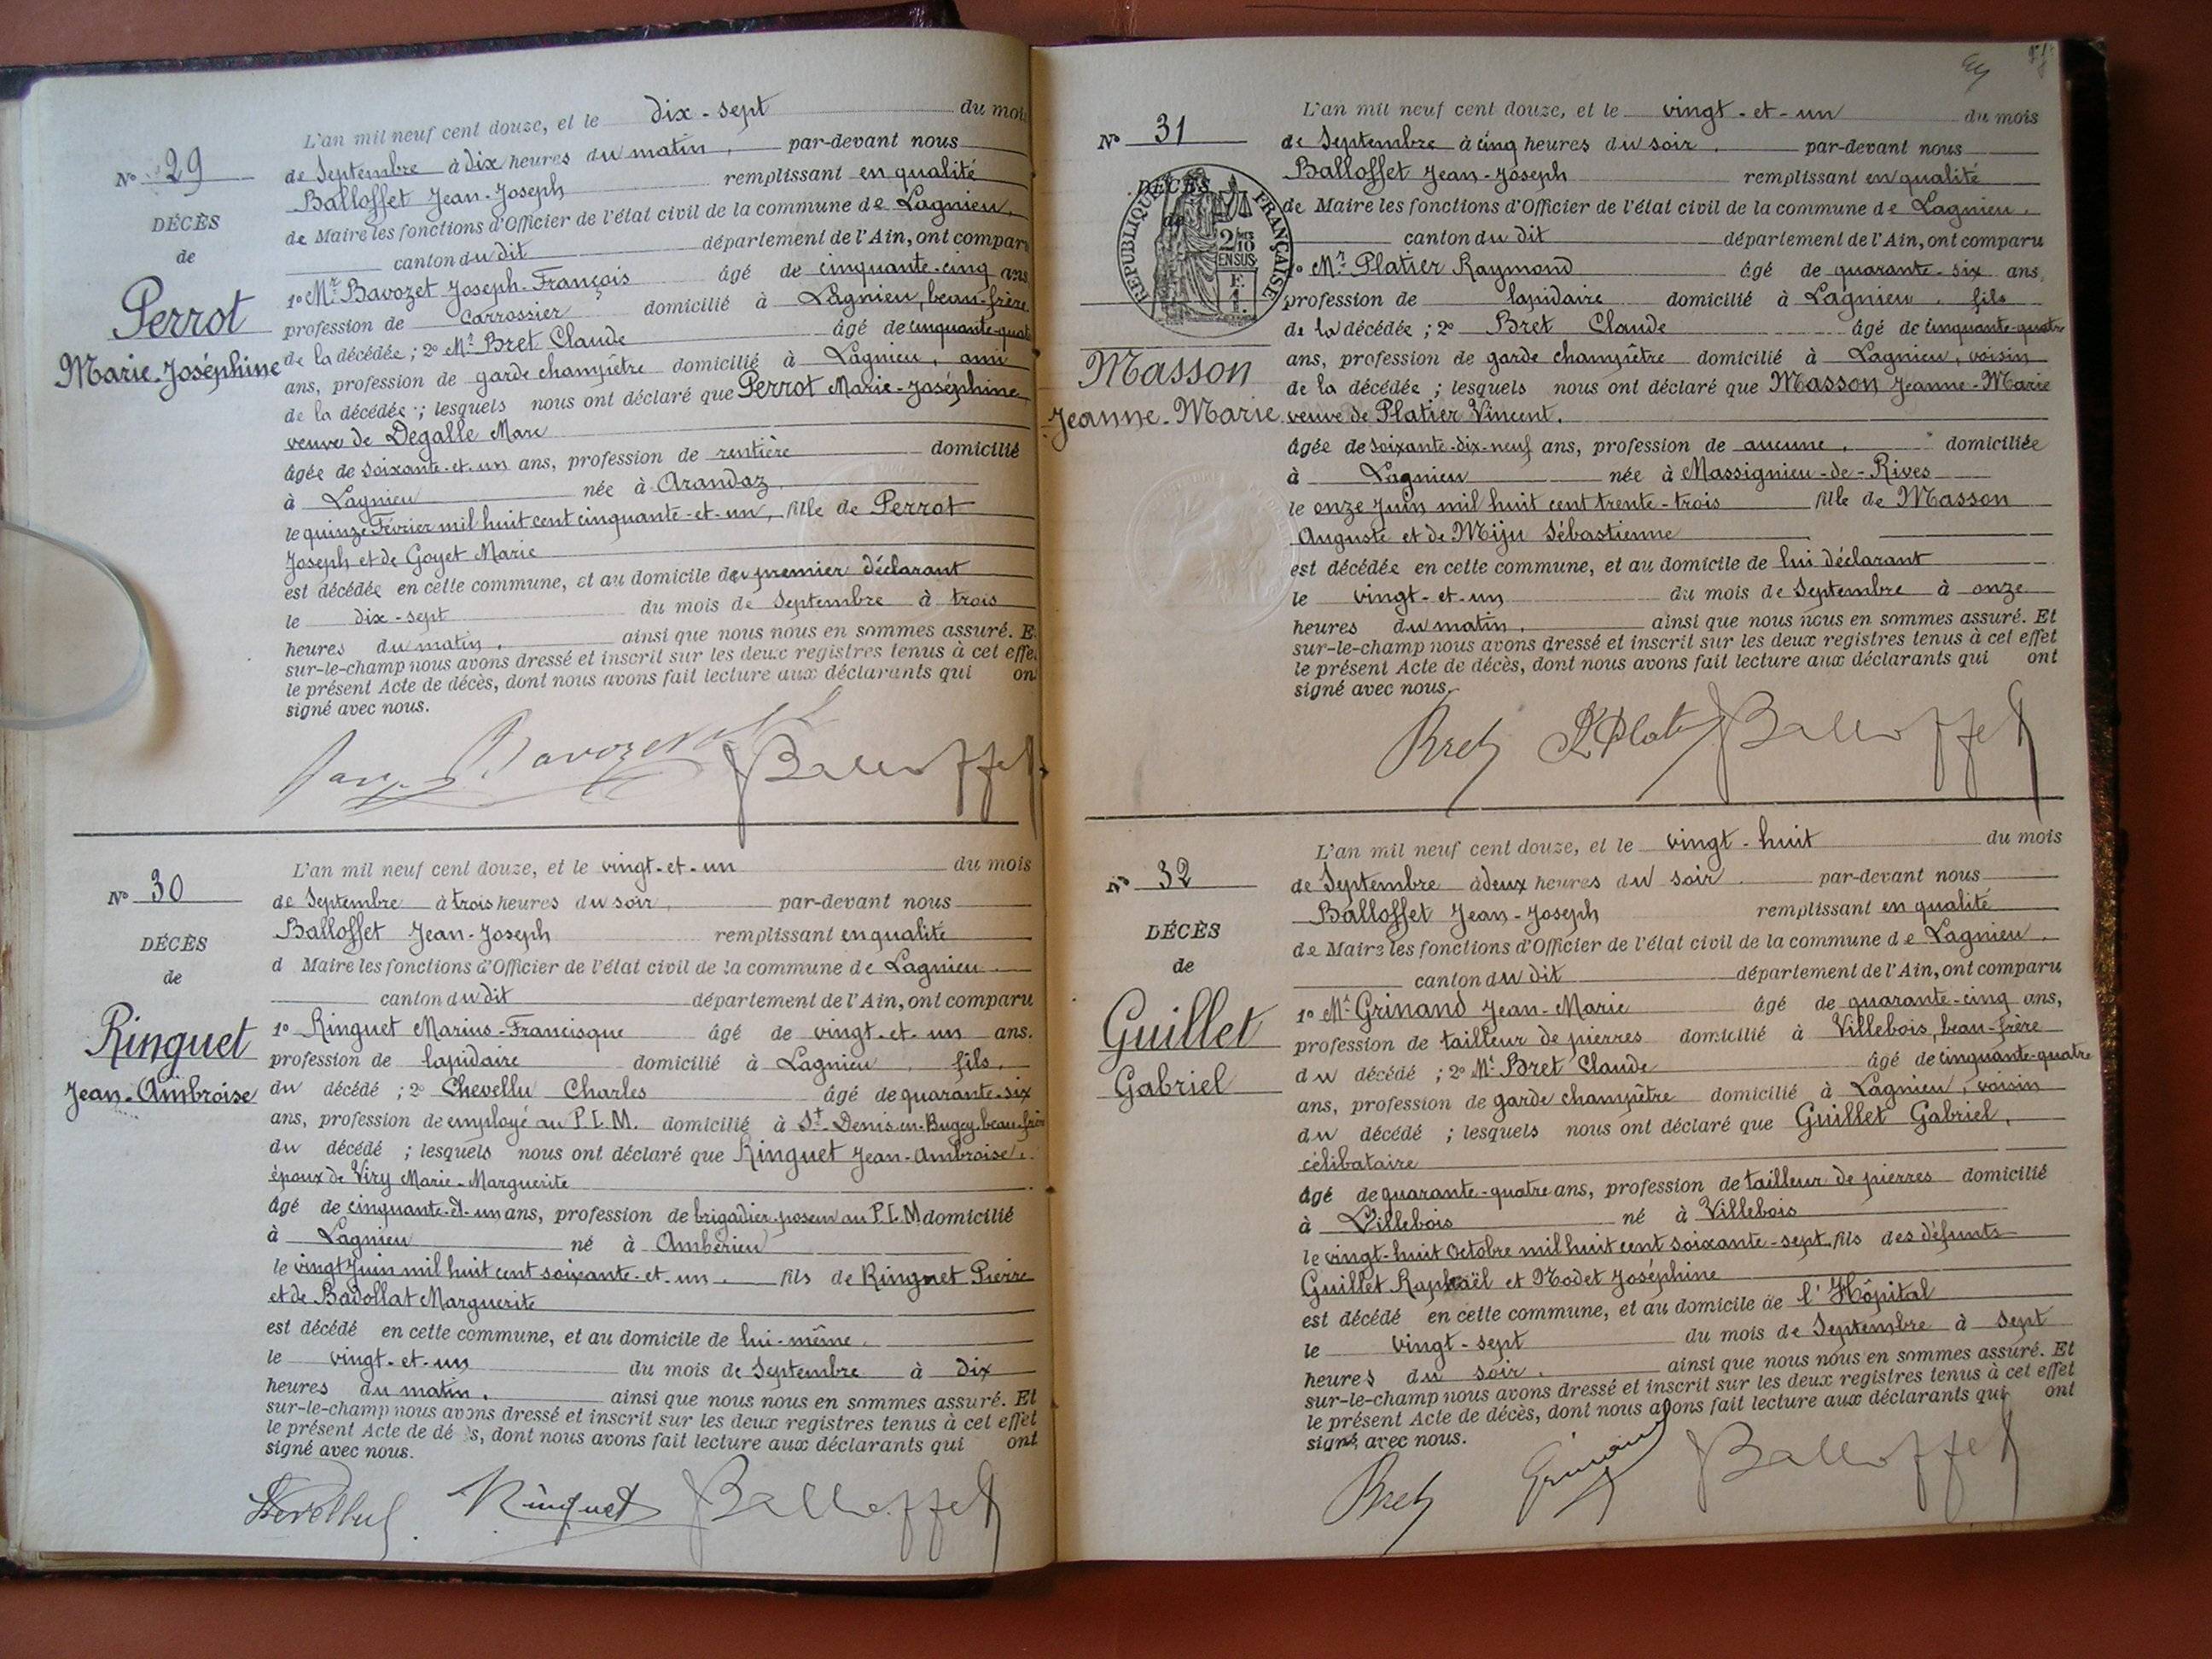 L'an mil neuf cent douze, et le dix-sept du moi
No 29 de Septembre à dix heures du matin, par-devant nous
Balloffet Jean-Joseph remplissant en qualité
DÉCÈS de Maire les fonctions d'Officier de l'état civil de la commune de Lagnieu,
de canton du dit département de l'Ain, ont compar
1o Mr Bavozet Joseph-François âgé de cinquante-cinq ans
Perrot profession de carrossier domicilié à Lagnieu, beau-frère
de la décédée ; 2o Mr Bret Claude âgé de cinquante-quat
Marie-Joséphine ans, profession de garde champêtre domicilié à Lagnieu, ami
de la décédée ; lesquels nous ont déclaré que Perrot Marie-Joséphine
veuve de Degalle Marc
âgée de soixante-et-un ans, profession de rentière domicilié
à Lagnieu née à Arandaz
le quinze Février mil huit cent cinquante-et-un, fille de Perrot
Joseph et de Goyet Marie
est décédée en cette commune, et au domicile du premier déclarant
le dix-sept du mois de Septembre à trois
heures du matin, ainsi que nous nous en sommes assuré. E
sur-le-champ nous avons dressé et inscrit sur les deux registres tenus à cet effe
le présent Acte de décès, dont nous avons fait lecture aux déclarants qui on
signé avec nous.
Bavozet Balloffet
L'an mil neuf cent douze, et le vingt-et-un du mois
No 30 de Septembre à trois heures du soir, par-devant nous
Balloffet Jean-Joseph remplissant en qualité
DÉCÈS d Maire les fonctions d'Officier de l'état civil de la commune de Lagnieu
de canton du dit département de l'Ain, ont comparu
Ringuet 1o Ringuet Marius-Francisque âgé de vingt-et-un ans.
profession de lapidaire domicilié à Lagnieu, fils,
Jean-Ambroise du décédé ; 2o Chevellu Charles âgé de quarante-six
ans, profession de employé au P.L.M. domicilié à St-Denis-en-Bugey beau-frère
du décédé ; lesquels nous ont déclaré que Ringuet Jean-Ambroise,
époux de Viry Marie-Marguerite
âgé de cinquante-et-un ans, profession de brigadier poseur au P.L.M domicilié
à Lagnieu né à Ambérieu
le vingt Juin mil huit cent soixante-et-un. fils de Ringuet Pierre
et de Badollat Marguerite
est décédé en cette commune, et au domicile de lui-même
le vingt-et-un du mois de Septembre à dix
heures du matin. ainsi que nous nous en sommes assuré. Et
sur-le-champ nous avons dressé et inscrit sur les deux registres tenus à cet effet
le présent Acte de dé s, dont nous avons fait lecture aux déclarants qui ont
signé avec nous.
Ringuet Balloffet
L'an mil neuf cent douze, et le vingt-et-un du mois
No 31 de Septembre à cinq heures du soir. par-devant nous
Balloffet Jean-Joseph remplissant en qualité
DÉCÈS de Maire les fonctions d'Officier de l'état civil de la commune de Lagnieu.
de canton du dit département de l'Ain, ont comparu
RÉPUBLIQUE FRANÇAISE
2/10 EN SUS
F. 1.
1o Mr Platier Raymond âgé de quarante-six ans,
profession de lapidaire domicilié à Lagnieu, fils
de la décédée ; 2o Bret Claude âgé de cinquante-quatre
Masson ans, profession de garde champêtre domicilié à Lagnieu, voisin
de la décédée ; lesquels nous ont déclaré que Masson Jeanne-Marie
Jeanne-Marie veuve de Platier Vincent.
âgée de soixante-dix-neuf ans, profession de aucune. domiciliée
à Lagnieu née à Massignieu-de-Rives
le onze Juin mil huit cent trente-trois fille de Masson
Auguste et de Miju Sébastienne
est décédée en cette commune, et au domicile de lui déclarant
le vingt-et-un du mois de Septembre à onze
heures du matin. ainsi que nous nous en sommes assuré. Et
sur-le-champ nous avons dressé et inscrit sur les deux registres tenus à cet effet
le présent Acte de décès, dont nous avons fait lecture aux déclarants qui ont
signé avec nous.
Bret Balloffet
L'an mil neuf cent douze, et le vingt-huit du mois
No 32 de Septembre à deux heures du soir. par-devant nous
Balloffet Jean-Joseph remplissant en qualité
DÉCÈS de Maire les fonctions d'Officier de l'état civil de la commune de Lagnieu.
de canton du dit département de l'Ain, ont comparu
Guillet 1o Mr Grinand Jean-Marie âgé de quarante-cinq ans,
profession de tailleur de pierres domicilié à Villebois, beau-frère
Gabriel du décédé ; 2o Mr Bret Claude âgé de cinquante-quatre
ans, profession de garde champêtre domicilié à Lagnieu, voisin
du décédé ; lesquels nous ont déclaré que Guillet Gabriel,
célibataire
âgé de quarante-quatre ans, profession de tailleur de pierres domicilié
à Villebois né à Villebois
le vingt-huit Octobre mil huit cent soixante-sept, fils des défunts
Guillet Raphaël et Modet Joséphine
est décédé en cette commune, et au domicile de l'Hôpital
le vingt-sept du mois de Septembre à sept
heures du soir. ainsi que nous nous en sommes assuré. Et
sur-le-champ nous avons dressé et inscrit sur les deux registres tenus à cet effet
le présent Acte de décès, dont nous avons fait lecture aux déclarants qui ont
signé avec nous.
Bret Grinand Balloffet